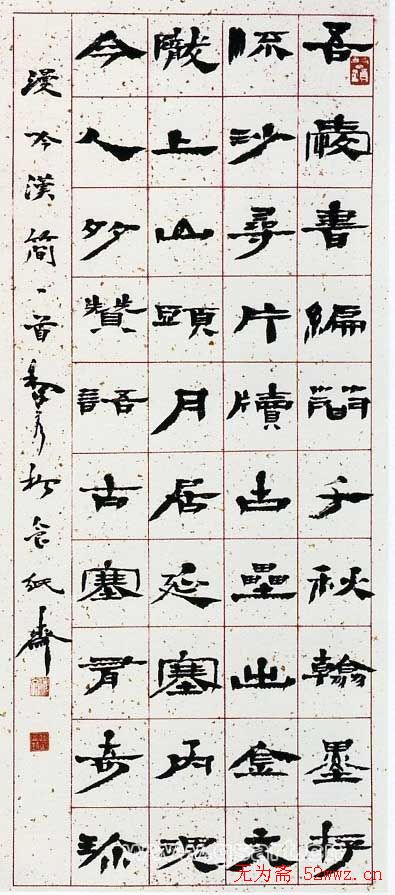 吾書編簡千秋翰墨
流沙尋片牘古壘出金文
隴上山頭月居延塞內現
今人多贊語古塞有奇珍
漫吟漢簡一首 於食紙齋
无为斋 52wwz.cn